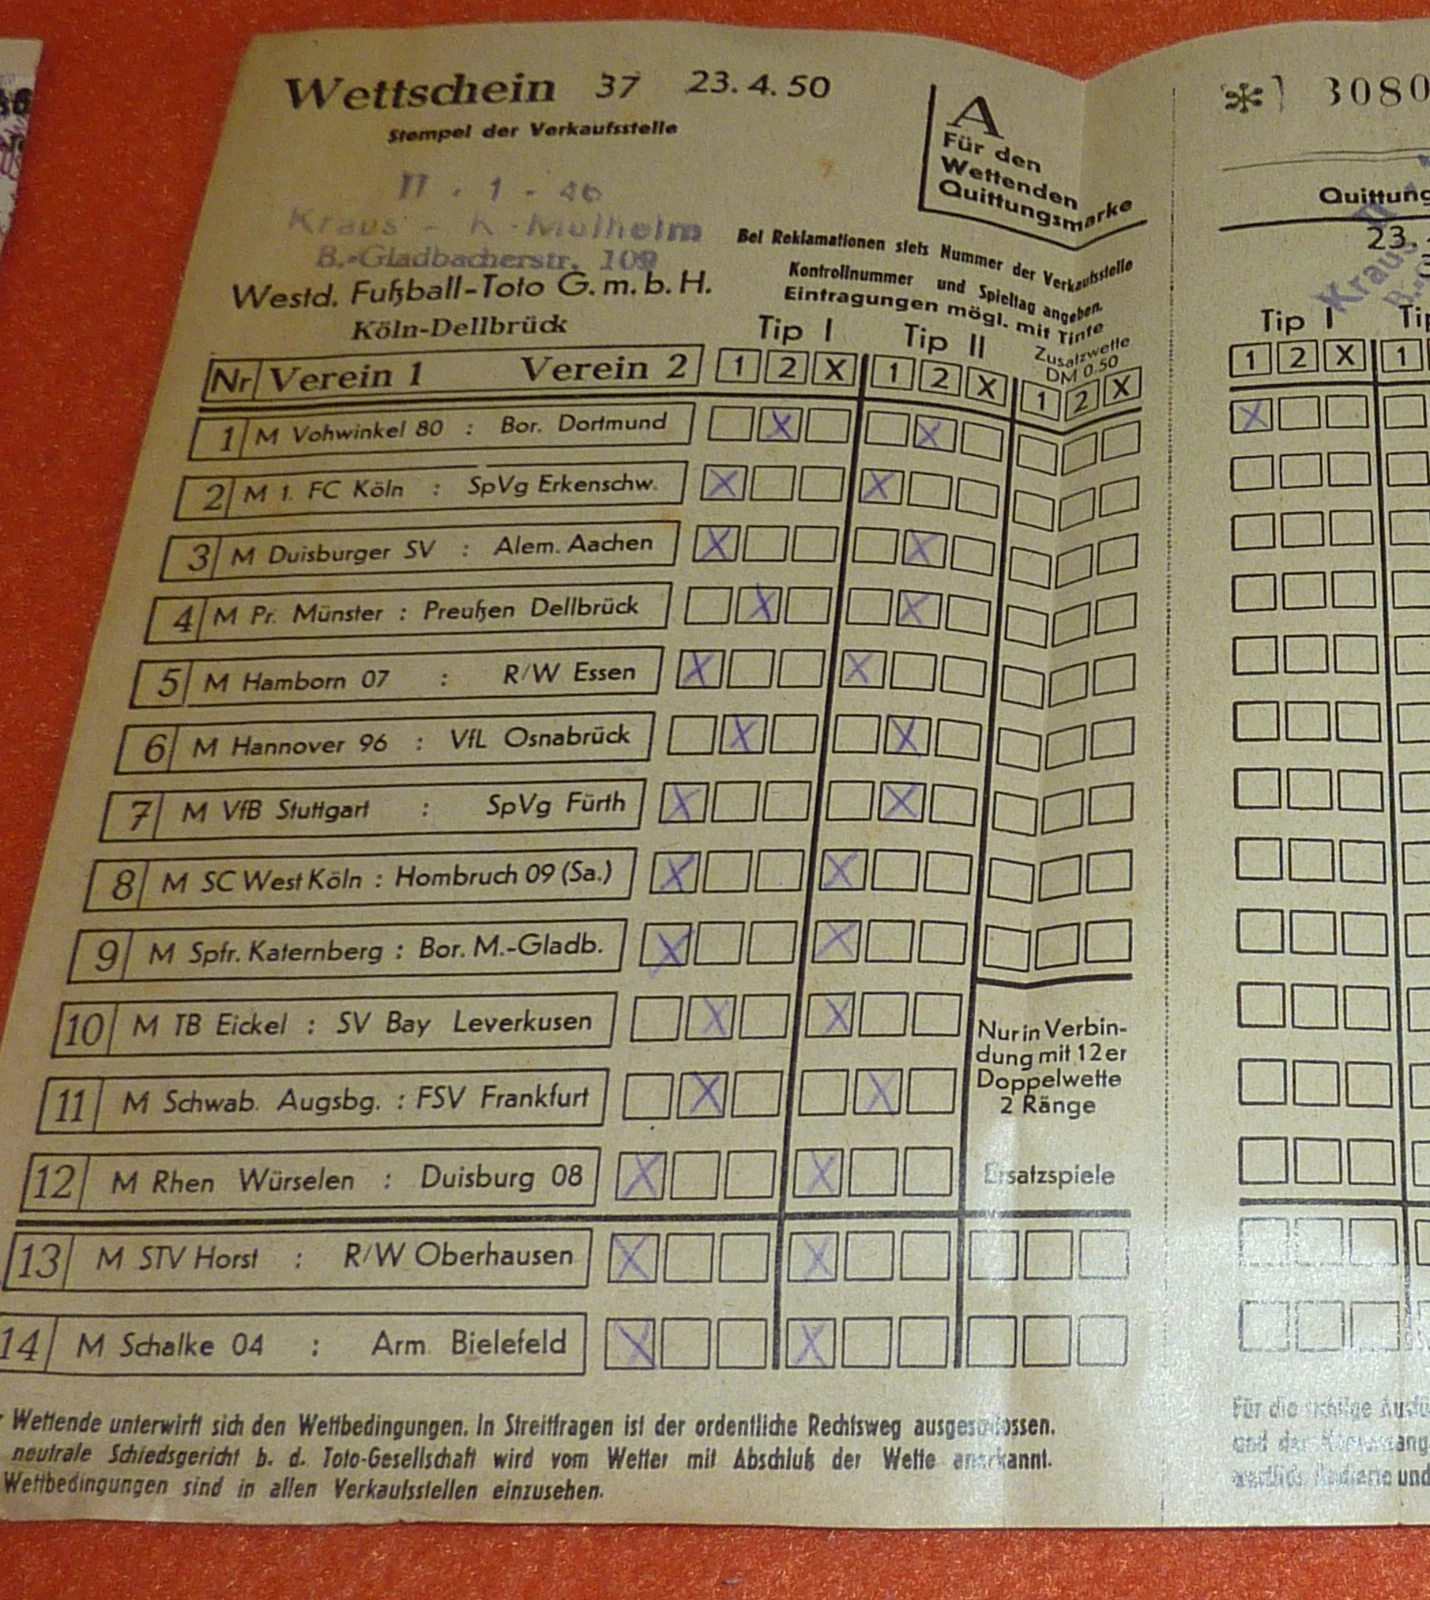 Wettschein 37 23.4.50
Stempel der Verkaufsstelle
II - 1 - 46
Kraus - K-Mülheim
B.-Gladbacherstr. 109
Westd. Fußball-Toto G.m.b.H.
Köln-Dellbrück
A
Für den
Wettenden
Quittungsmarke
Bei Reklamationen stets Nummer der Verkaufsstelle
Kontrollnummer und Spieltag angeben.
Eintragungen mögl. mit Tinte
Tip I Tip II Zusatzwette
DM 0.50
Nr Verein 1 Verein 2 1 2 X 1 2 X 1 2 X
1 M Vohwinkel 80 : Bor. Dortmund X X
2 M 1. FC Köln : SpVg Erkenschw. X X
3 M Duisburger SV : Alem. Aachen X X
4 M Pr. Münster : Preußen Dellbrück X X
5 M Hamborn 07 : R/W Essen X X
6 M Hannover 96 : VfL Osnabrück X X
7 M VfB Stuttgart : SpVg Fürth X X
8 M SC West Köln : Hombruch 09 (Sa.) X X
9 M Spfr. Katernberg : Bor. M.-Gladb. X X
10 M TB Eickel : SV Bay Leverkusen X X
11 M Schwab. Augsbg. : FSV Frankfurt X X
12 M Rhen Würselen : Duisburg 08 X X
13 M STV Horst : R/W Oberhausen X X
14 M Schalke 04 : Arm. Bielefeld X X
Nur in Verbin-
dung mit 12er
Doppelwette
2 Ränge
Ersatzspiele
Wettende unterwirft sich den Wettbedingungen. In Streitfragen ist der ordentliche Rechtsweg ausgeschlossen.
neutrale Schiedsgericht b. d. Toto-Gesellschaft wird vom Wetter mit Abschluß der Wette anerkannt.
Wettbedingungen sind in allen Verkaufsstellen einzusehen.
3080
Quittung
23.
Kraus
Tip I
1 2 X 1
X
Für die
und